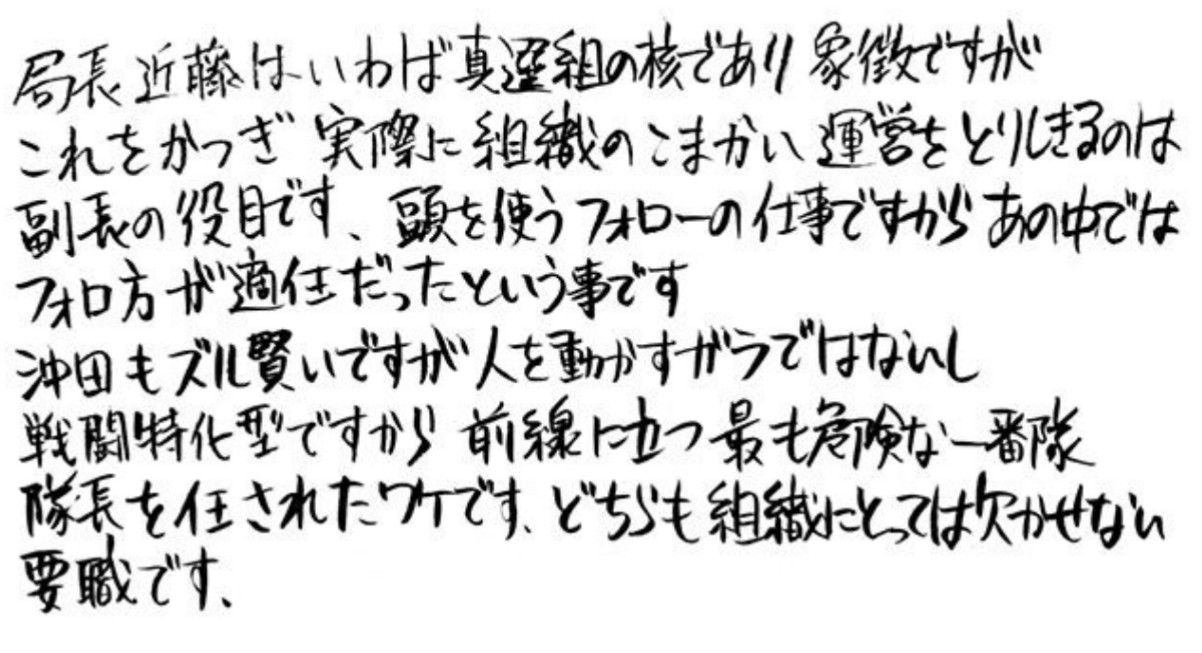 局長近藤はいわば真選組の核であり象徴ですが
これをかつぎ 実際に組織のこまかい運営をとりしきるのは
副長の役目です、頭を使うフォローの仕事ですから あの中では
フォロ方が適任だったという事です
沖田もズル賢いですが人を動かすガラではないし
戦闘特化型ですから 前線に立つ最も危険な一番隊
隊長を任されたワケです、どちらも組織にとっては欠かせない
要職です、